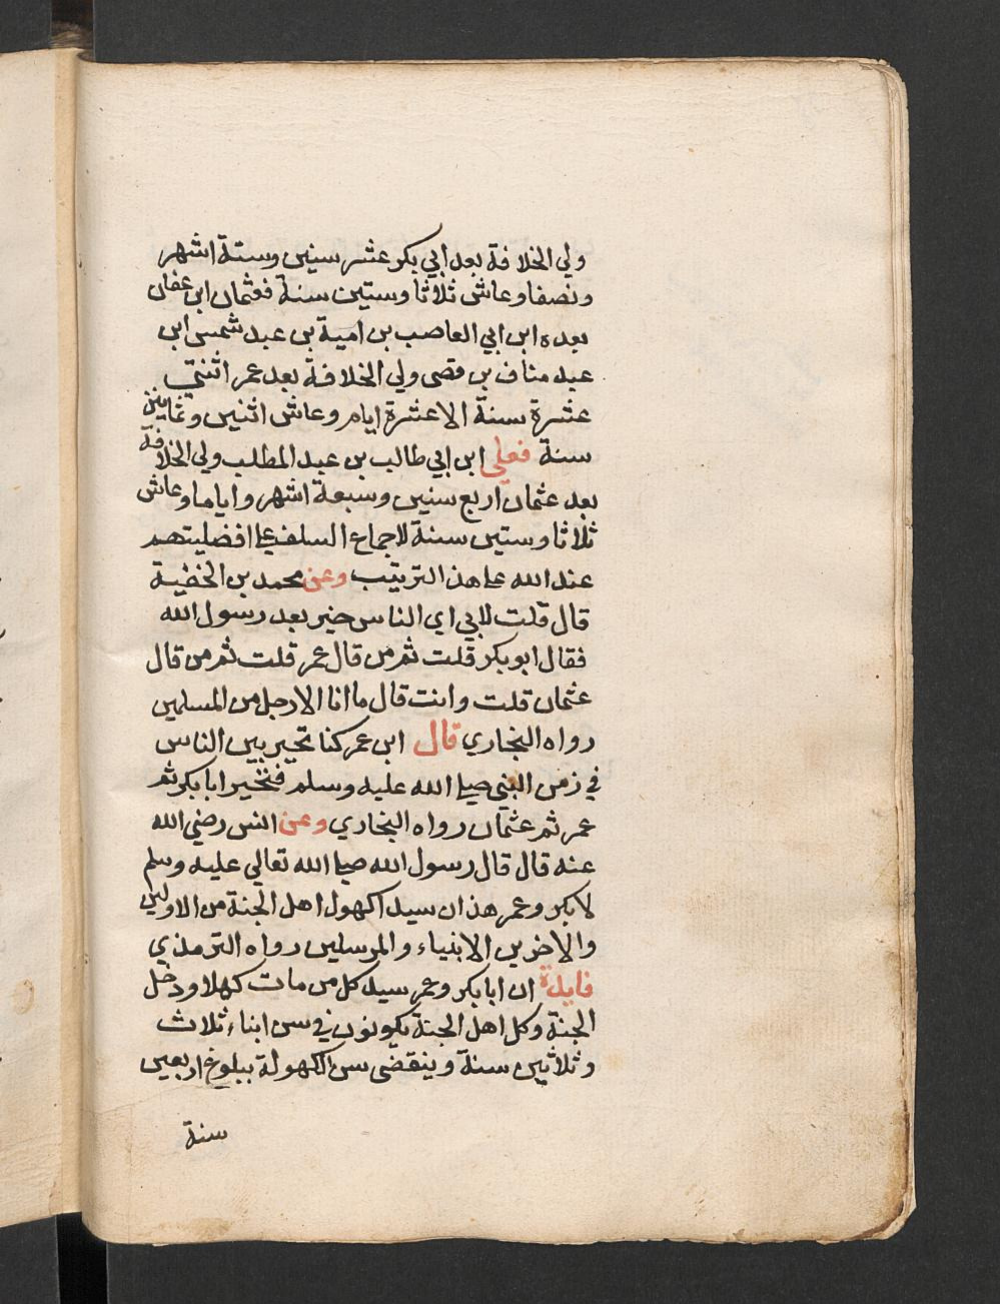 ولي الخلافة بعد ابي بكر عشر سنين وستة اشهر
ونصفا وعاش ثلاثا وستين سنة فعثمان ابن عفان
بعده ابن ابي العاصب بن امية بن عبد شمس ابن
عبد مناف بن قصى ولي الخلافة بعد عمر اثنتي
عشرة سنة الا عشرة ايام وعاش اثنين وثمانين
سنة فعلى ابن ابي طالب بن عبد المطلب ولي الخلافة
بعد عثمان اربع سنين وسبعة اشهر واياما وعاش
ثلاثا وستين سنة لاجماع السلف على افضليتهم
عند الله على هذا الترتيب وعن محمد بن الحنفية
قال قلت لابي اي الناس خير بعد رسول الله
فقال ابو بكر قلت ثم من قال عمر قلت ثم من قال
عثمان قلت وانت قال ما انا الا رجل من المسلمين
رواه البخاري قال ابن عمر كنا نخير بين الناس
في زمن النبي صلى الله عليه وسلم فنخير ابا بكر ثم
عمر ثم عثمان رواه البخاري وعن انس رضي الله
عنه قال قال رسول الله صلى الله تعالي عليه وسلم
لابكر وعمر هذان سيدا كهول اهل الجنة من الاولين
والاخرين الا انبياء والمرسلين رواه الترمذي
فايدة ان ابا بكر وعمر سيد كل من مات كهلا ودخل
الجنة وكل اهل الجنة يكونون في سن ابناء ثلاث
وثلاثين سنة وينقضى سن الكهولة ببلوغ اربعين
سنة